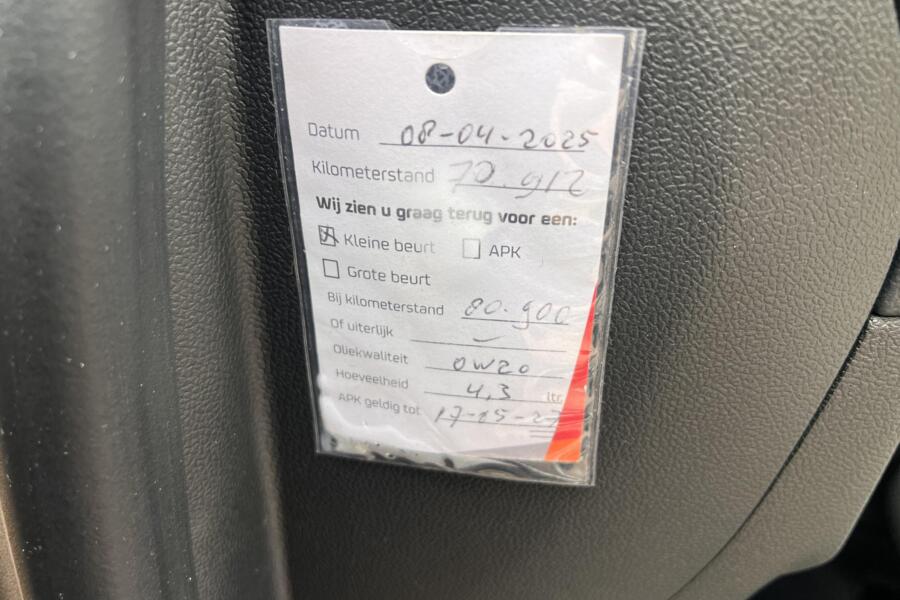 Datum 08-04-2025
Kilometerstand 70.912
Wij zien u graag terug voor een:
Kleine beurt APK
Grote beurt
Bij kilometerstand 80.900
Of uiterlijk -
Oliekwaliteit 0W20
Hoeveelheid 4,3 ltr.
APK geldig tot